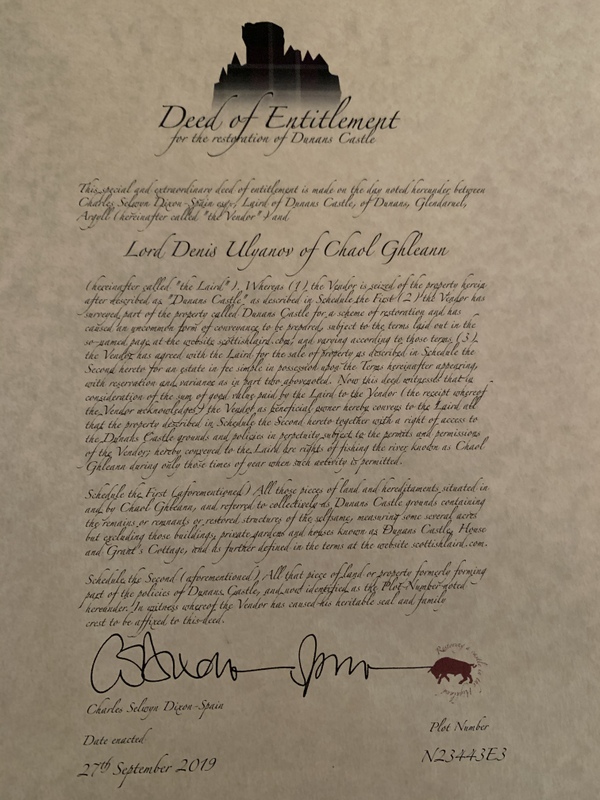 Deed of Entitlement
for the restoration of Dunans Castle
This special and extraordinary deed of entitlement is made on the day noted hereunder between
Charles Selwyn Dixon-Spain esq., Laird of Dunans Castle, of Dunans, Glendaruel,
Argyll (hereinafter called "the Vendor") and
Lord Denis Ulyanov of Chaol Ghleann
(hereinafter called "the Laird"). Whereas (1) the Vendor is seized of the property herein
after described as "Dunans Castle" as described in Schedule the First (2) the Vendor has
surveyed part of the property called Dunans Castle for a scheme of restoration and has
caused an uncommon form of conveyance to be prepared, subject to the terms laid out in the
so-named page at the website scottishlaird.com, and varying according to those terms (3).
the Vendor has agreed with the Laird for the sale of property as described in Schedule the
Second hereto for an estate in fee simple in possession upon the Terms hereinafter appearing,
with reservation and variance as in part two above noted. Now this deed witnesseth that in
consideration of the sum of good value paid by the Laird to the Vendor (the receipt whereof
the Vendor acknowledges) the Vendor as beneficial owner hereby conveys to the Laird all
that the property described in Schedule the Second hereto together with a right of access to
the Dunans Castle grounds and policies in perpetuity subject to the permits and permissions
of the Vendor; hereby conveyed to the Laird are rights of fishing the river known as Chaol
Ghleann during only those times of year when such activity is permitted.
Schedule the First (aforementioned) All those pieces of land and hereditaments situated in
and by Chaol Ghleann, and referred to collectively as Dunans Castle grounds containing
the remains or remnants or restored structures of the selfsame, measuring some several acres
but excluding those buildings, private gardens and houses known as Dunans Castle, House
and Grant's Cottage, and as further defined in the terms at the website scottishlaird.com.
Schedule the Second (aforementioned) All that piece of land or property formerly forming
part of the policies of Dunans Castle, and now identified as the Plot Number noted
hereunder. In witness whereof the Vendor has caused his heritable seal and family
crest to be affixed to this deed.
Charles Selwyn Dixon-Spain
Date enacted
27th September 2019
Plot Number
N23443E3